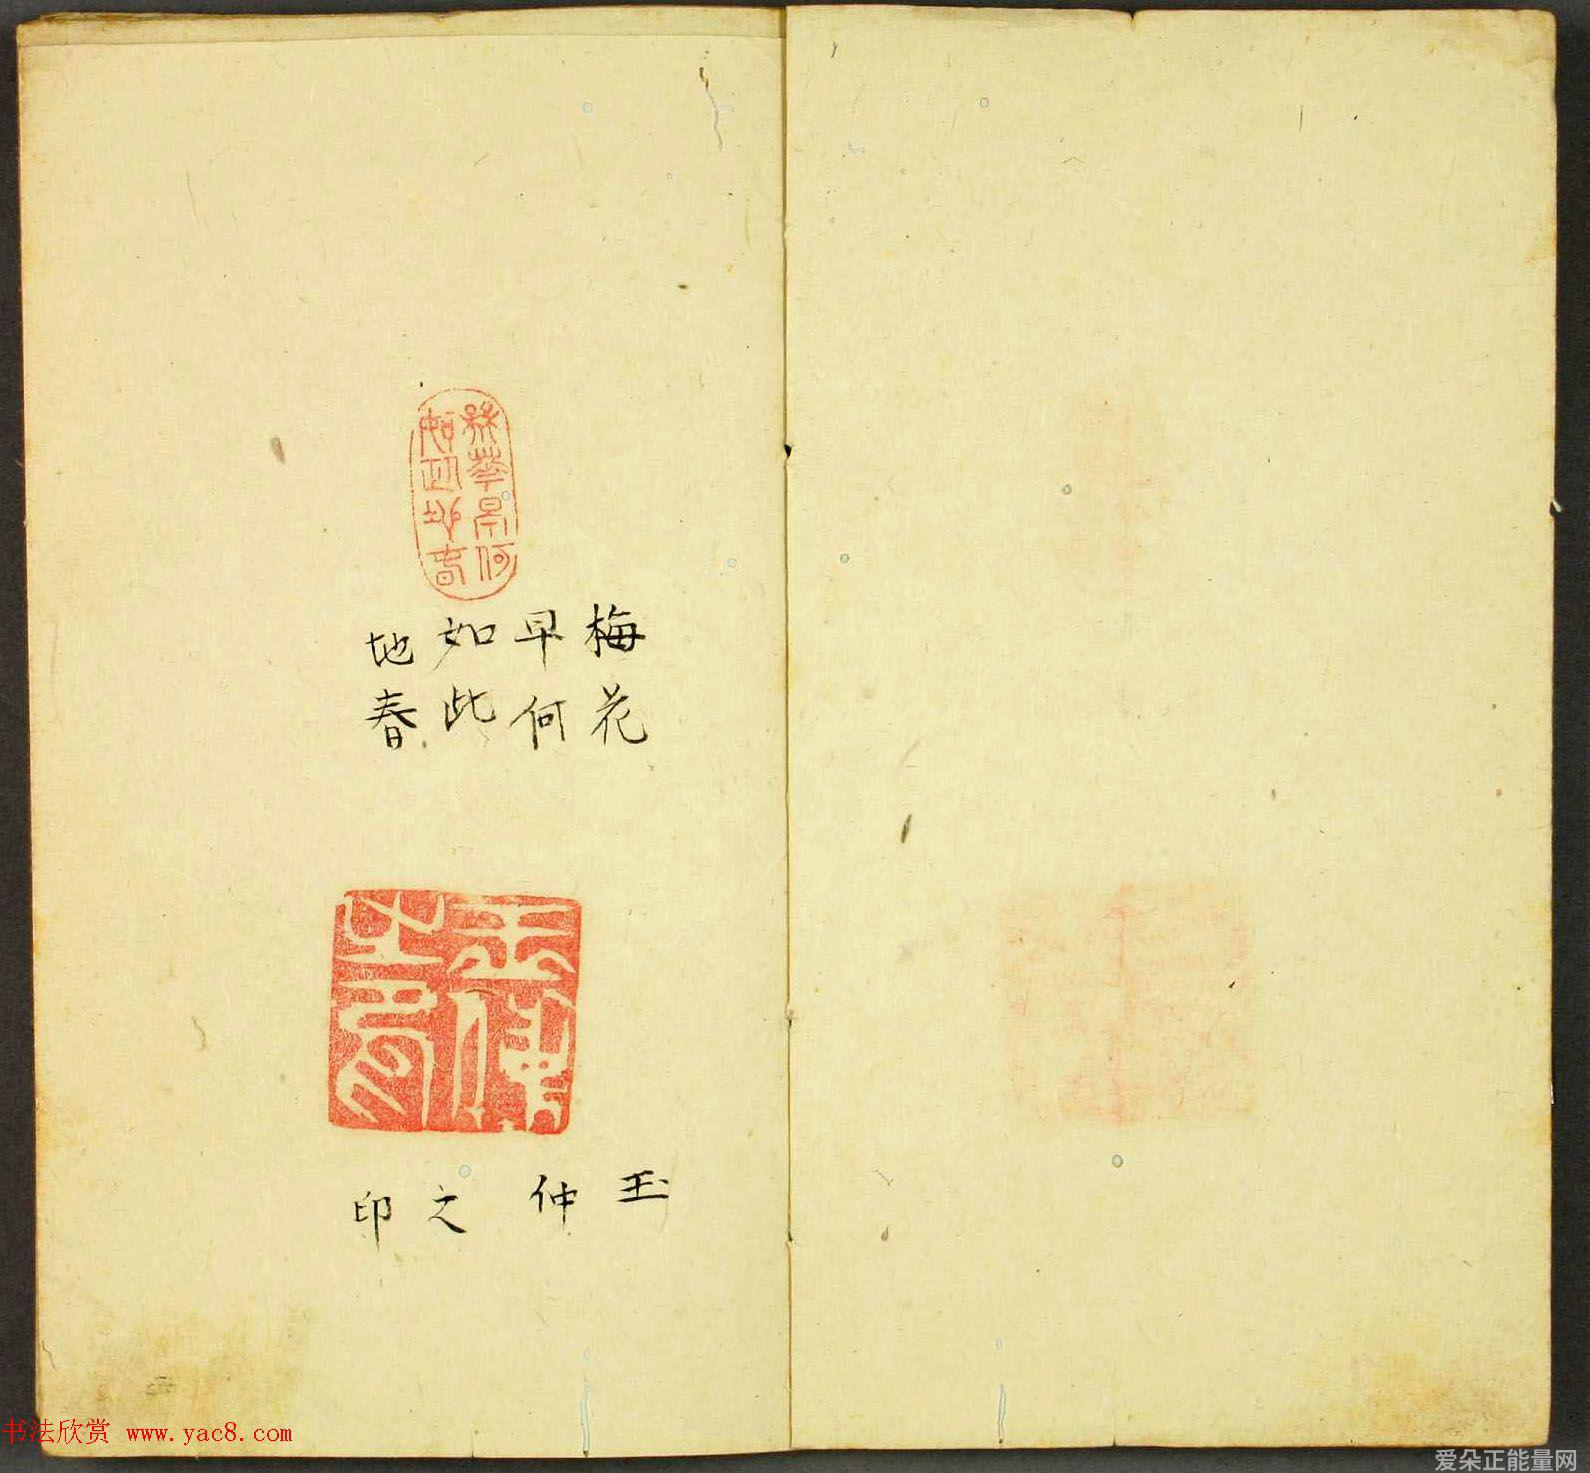 梅花
早何
如此
地春
玉
仲
之
印
书法欣赏 www.yac8.com
爱朵正能量网